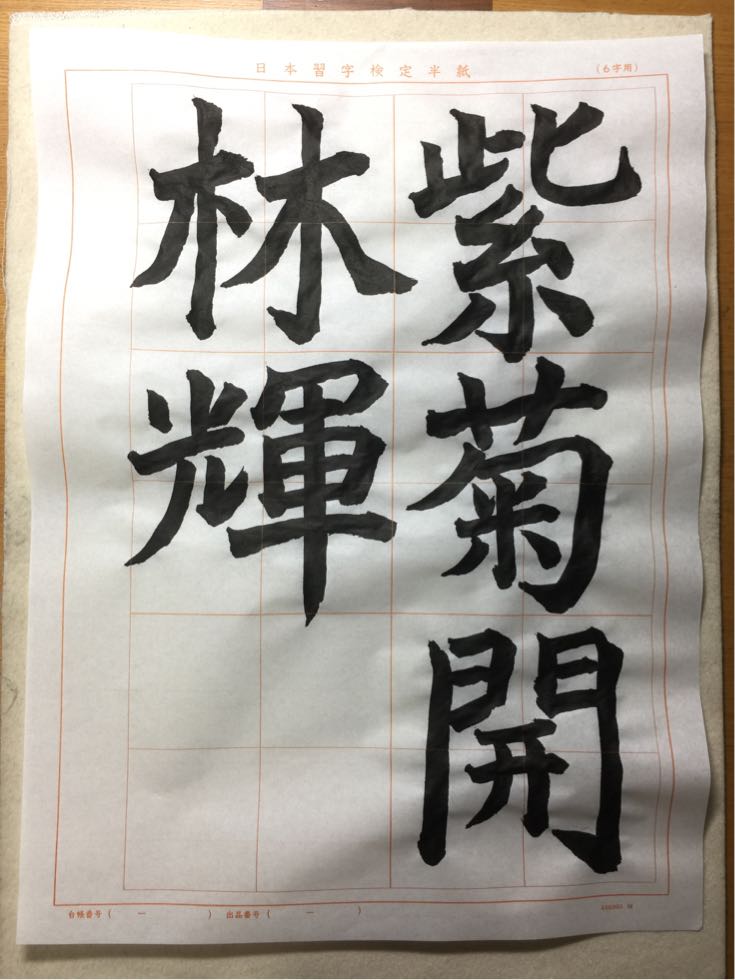 日本習字検定半紙
(6字用)
紫菊開
林輝
台帳番号( 一 )
出品番号( 一 )